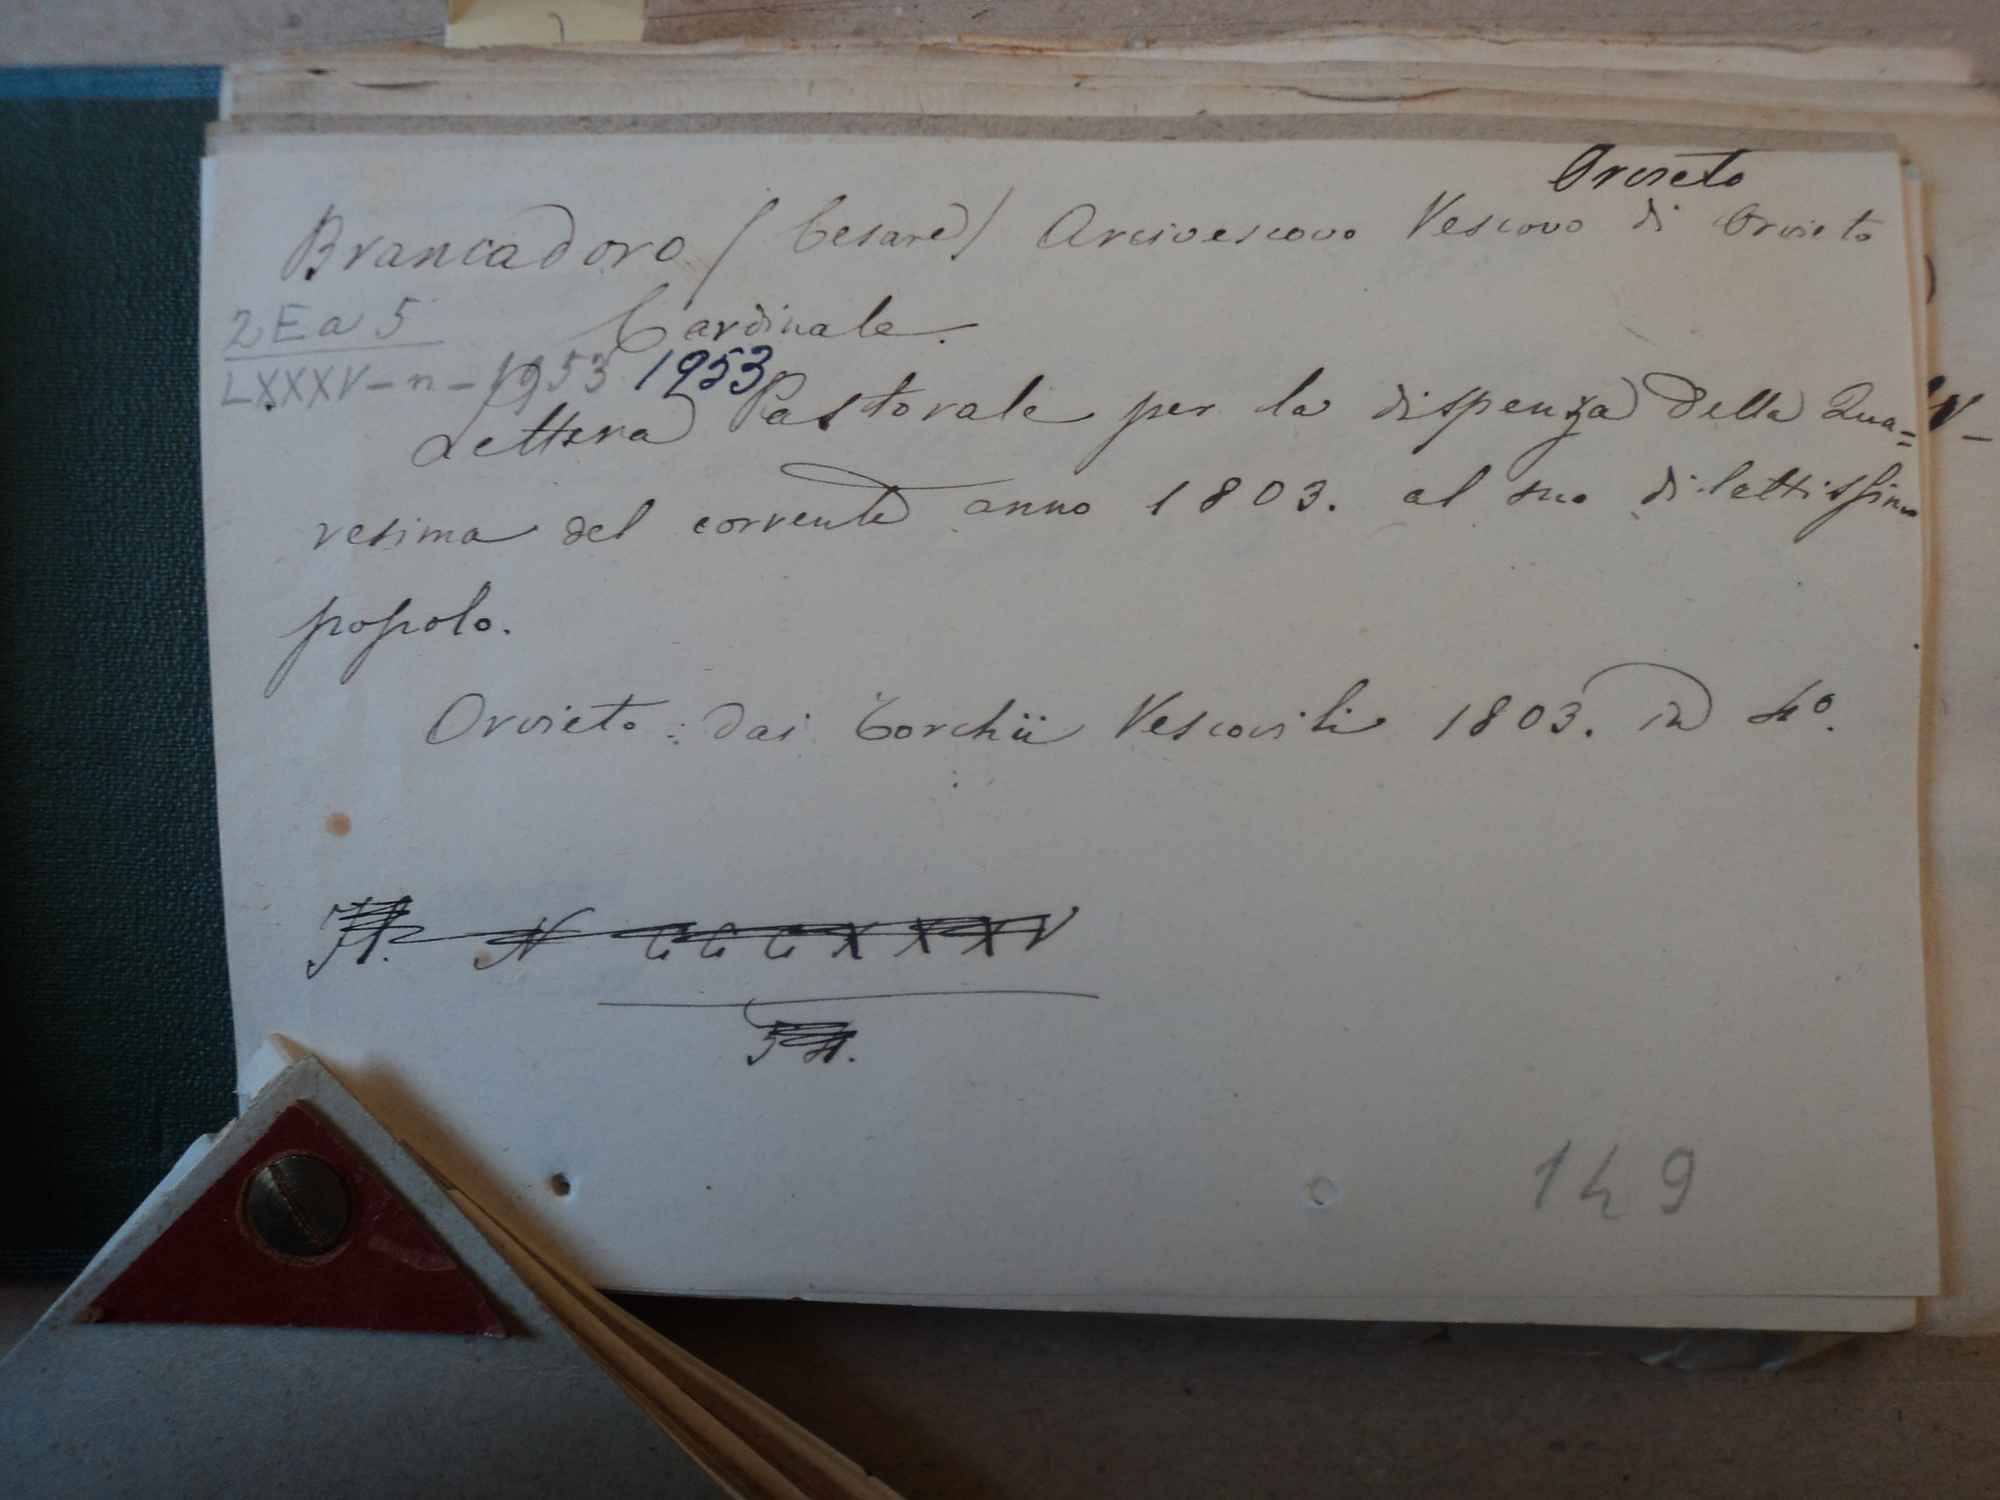 Orvieto
Brancadoro (Cesare) Arcivescovo Vescovo di Orvieto
Cardinale.
2Ea5
LXXXV-n-1953 1953
Lettera Pastorale per la dispenza della Qua=
resima del corrente anno 1803. al suo dilettissimo
popolo.
Orvieto: dai Torchii Vescovili 1803. in 4º.
N CCCXXXV
149